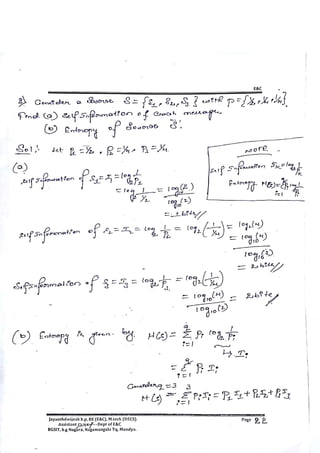 E&C
8) Consider a source S = {S1, S2, S3} with P = {1/2, 1/4, 1/4}
Find (a) Self Information of each message
(b) Entropy of Source S.
Sol: Let P1 = 1/2, P2 = 1/4, P3 = 1/4.
NOTE
Self Information Ik = log 1/Pk
(a)
Self Information of S1 = I1 = log2 1/P1
= log 1/(1/2) = log(2)/log(2)
= 1 bits//
Self Information of S2 = I2 = log2 1/P2 = log2(1/(1/4)) = log2(4)
= log10(4)/log10(2)
= 2 bits//
Self Information of S3 = I3 = log2 1/P3 = log2(1/(1/4))
= log10(4)/log10(2) = 2 bits//
(b) Entropy is given by H(S) = Σ Pi log2 1/Pi
↳ Ii
= Σ Pi Ii
i=1
Consider q = 3
H(S) = Σ Pi Ii = P1I1 + P2I2 + P3I3
Jayanthdwijesh h.p. BE (E&C), M.tech (DECS).
Assistant Dept of E&C
BGSIT, b.g Nagara, Nagamangala Tq, Mandya.
Page 22